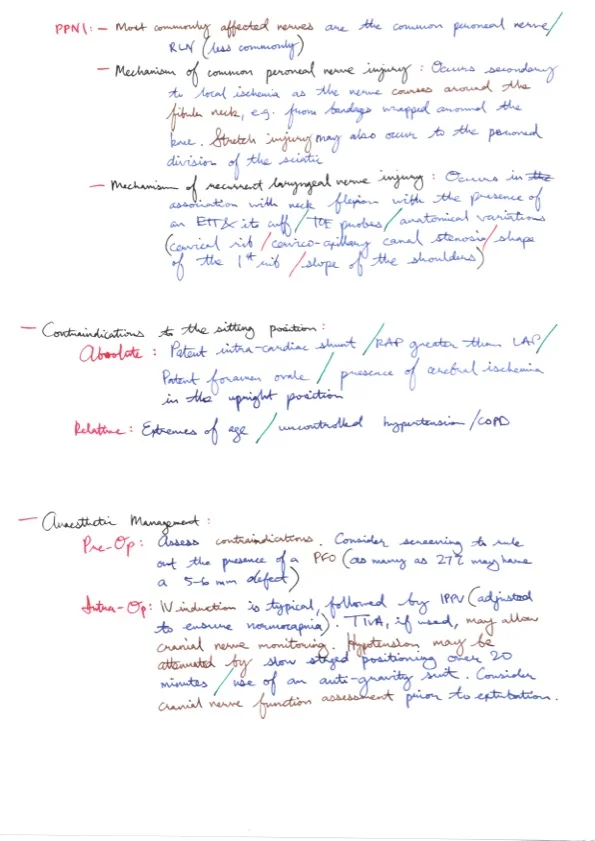 PPNI: - Most commonly affected nerves are the common peroneal nerve/
RLN (less commonly)
- Mechanism of common peroneal nerve injury : Occurs secondary
to local ischemia as the nerve courses around the
fibular neck, e.g. from bandage wrapped around the
knee. Stretch injury may also occur to the peroneal
division of the sciatic
- Mechanism of recurrent laryngeal nerve injury : Occurs in the
association with neck flexion with the presence of
an ETT & it cuff / TOE probes / anatomical variations
(cervical rib / cervico-axillary canal stenosis / shape
of the 1st rib / slope of the shoulders)
- Contraindications to the sitting position :
Absolute : Patent intra-cardiac shunt / RAP greater than LAP /
Patent foramen ovale / presence of cerebral ischemia
in the upright position
Relative : Extremes of age / uncontrolled hypertension / COPD
- Anaesthetic Management :
Pre-Op : Assess contraindications. Consider screening to rule
out the presence of a PFO (as many as 27% may have
a 5-6 mm defect)
Intra-Op : IV induction is typical, followed by IPPV (adjusted
to ensure normocapnia). TIVA, if used, may allow
cranial nerve monitoring. Hypotension may be
attenuated by slow staged positioning over 20
minutes / use of an anti-gravity suit. Consider
cranial nerve function assessment prior to extubation.